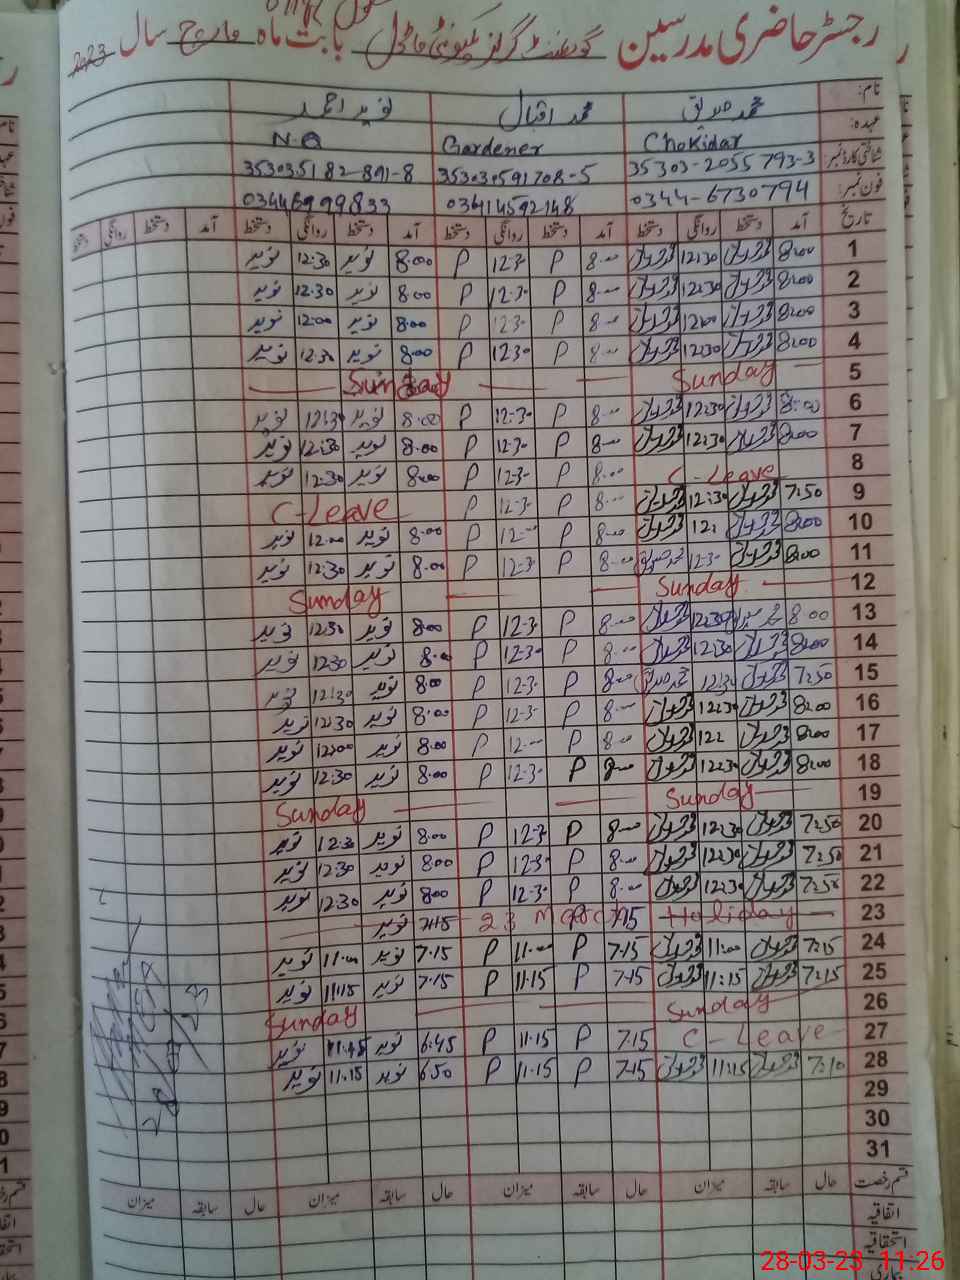 رجسٹر حاضری مدرسین گورنمنٹ گرلز کمیونٹی ماڈل بابت ماہ مارچ سال 2023
نام: محمد صدیق محمد اقبال نوید احمد
عہدہ: Chokidar Gardener N.Q
شناختی کارڈ نمبر: 35303-2055793-3 353030591708-5 3530351 82-891-8
فون نمبر: 0344-6730794 03414592148 03446999833
تاریخ آمد دستخط روانگی دستخط آمد دستخط روانگی دستخط آمد دستخط روانگی دستخط آمد دستخط روانگی دستخط
1 8:00 12:30 8-00 P 12-30 P 8:00 نوید 12:30 نوید
2 8:00 12:30 8-00 P 12-30 P 8:00 نوید 12:30 نوید
3 8:00 12:00 8-00 P 1230 P 8:00 نوید 12:00 نوید
4 8:00 12:30 8-00 P 1230 P 8:00 نوید 12:30 نوید
5 Sunday Sunday
6 8:00 12:30 8-00 P 12-30 P 8:00 نوید 12:30 نوید
7 8:00 12:30 8-00 P 12-30 P 8:00 نوید 12:30 نوید
8 C-Leave 8-00 P 12-30 P 8:00 نوید 12:30 نوید
9 7:50 12:30 8-00 P 12-30 P C-Leave
10 8:00 12: 8-00 P 12-00 P 8:00 نوید 12:00 نوید
11 8:00 12-30 محمد صدیق 8-00 P 12-30 P 8:00 نوید 12:30 نوید
12 Sunday Sunday
13 8:00 12:30 8-00 P 12-30 P 8:00 نوید 12:30 نوید
14 8:00 12:30 8-00 P 12-30 P 8:00 نوید 12:30 نوید
15 7:50 12:30 محمد صدیق 8-00 P 12-30 P 8:00 نوید 12:30 نوید
16 8:00 12:30 8-00 P 12-30 P 8:00 نوید 12:30 نوید
17 8:00 12: 8-00 P 12-00 P 8:00 نوید 12:00 نوید
18 8:00 12:30 8-00 P 12-30 P 8:00 نوید 12:30 نوید
19 Sunday Sunday
20 7:50 12:30 8-00 P 12-30 P 8:00 نوید 12:30 نوید
21 7:50 12:30 8-00 P 12-30 P 8:00 نوید 12:30 نوید
22 7:50 12:30 8-00 P 12-30 P 8:00 نوید 12:30 نوید
23 Holiday 7:15 23 March 7:15 نوید
24 7:15 11:00 7-15 P 11-00 P 7-15 نوید 11:00 نوید
25 7:15 11:15 7-15 P 11-15 P 7-15 نوید 11:15 نوید
26 Sunday Sunday
27 C-Leave 7-15 P 11-15 P 6:45 نوید 11:45 نوید
28 7:10 11:15 7-15 P 11-15 P 6:50 نوید 11:15 نوید
29
30
31
قسم رخصت حال سابقہ میزان حال سابقہ میزان حال سابقہ میزان حال سابقہ میزان
اتفاقیہ
استحقاقیہ
28-03-23 11:26